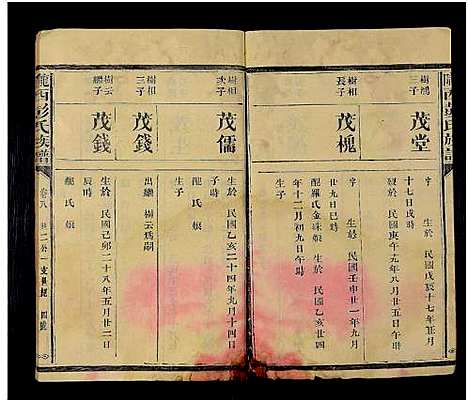 隴西彭氏族譜
樹鴻
三子
茂堂
字 生於 民國戊辰十七年丑月
十七日戌時
民國庚午九年八月廿五日午時
樹相
長子
茂槐
字 生於 民國壬申廿一年九月
廿九日巳時
配羅氏金珠娘 生於 民國乙亥廿四
年十二月初九日午時
生子
樹相
次子
茂儒
生於 民國乙亥二十四年九月十四日
時
配 氏 娘
生子
樹相
三子
茂錢
出繼 樹云為嗣
樹云
繼子
茂錢
生於 民國己卯二十八年五月廿二日
辰時
配 氏 娘
隴西彭氏族譜
卷八
四號